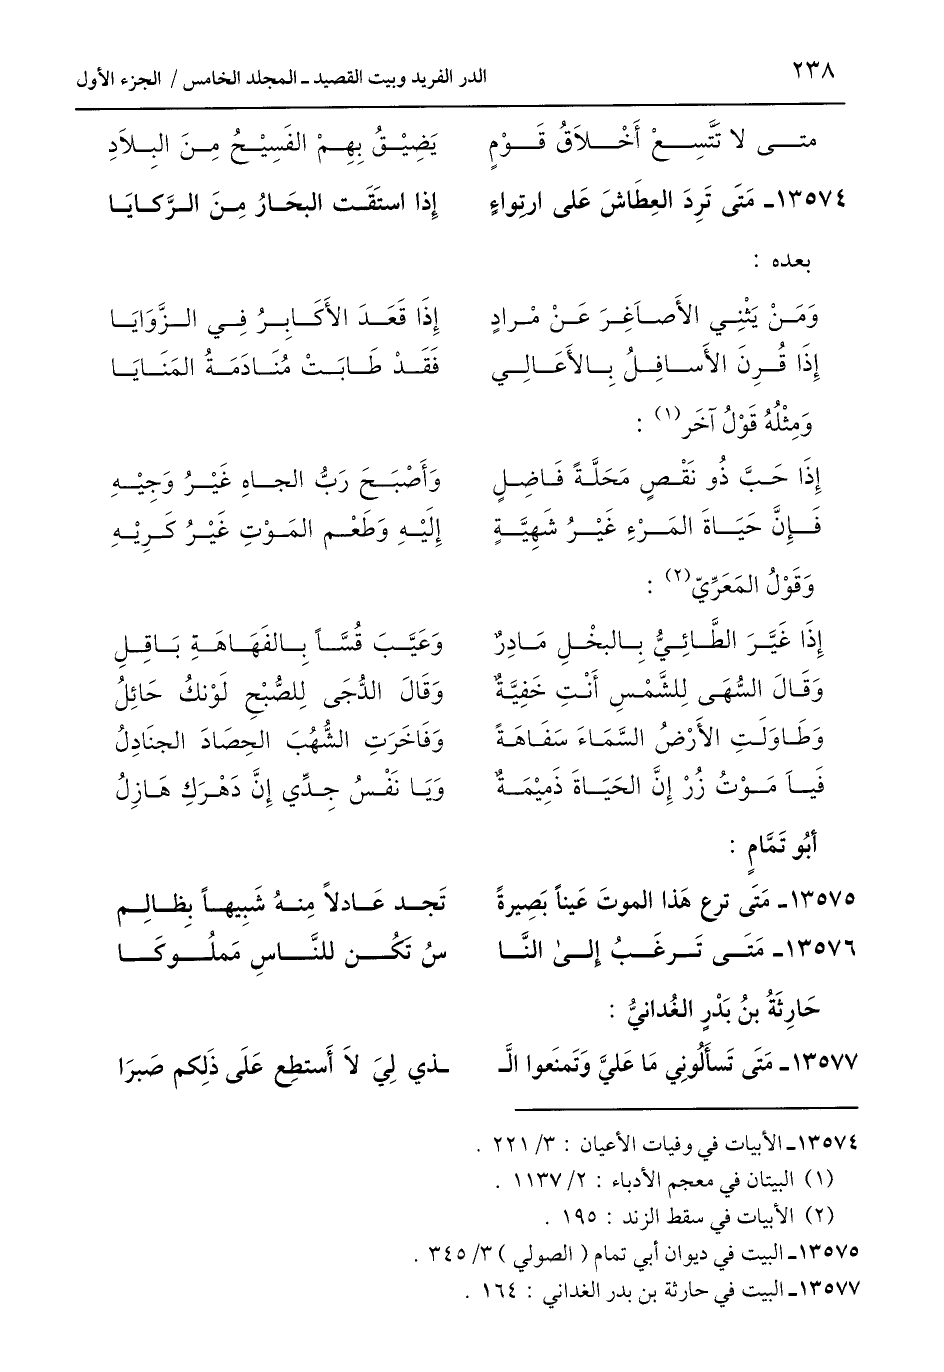 ٢٣٨ الدر الفريد وبيت القصيد ـ المجلد الخامس / الجزء الأول
متـــى لا تَتَّسِـــعْ أَخْـــلاَقُ قَـــوْمٍ يَضِيْــقُ بِهِــمْ الفَسِيْــحُ مِــنَ البِــلاَدِ
١٣٥٧٤ـ مَتَى تَرِدَ العِطَاشَ عَلى ارتِواءٍ إِذا استَقَت البحَارُ مِنَ الرَّكَايَا
بعده :
وَمَــنْ يَثْنِــي الأَصَــاغِــرَ عَــنْ مُــرادٍ إِذَا قَعَــدَ الأَكَــابِــرُ فِــي الــزَّوَايَــا
إِذَا قُــرِنَ الأَسَــافِــلُ بِــالأَعَــالِــي فَقَــدْ طَــابَــتْ مُنَــادَمَــةُ المَنَــايَــا
وَمِثْلُهُ قَوْلُ آخَر(١) :
إِذَا حَــبَّ ذُو نَقْــصٍ مَحَلَّــةَ فَــاضِــلٍ وَأَصْبَــحَ رَبُّ الجــاهِ غَيْــرُ وَجِيْــهِ
فَــإِنَّ حَيَــاةَ المَــرْءِ غَيْــرُ شَهِيَّــةٍ إِلَيْــهِ وَطَعْــمِ المَــوْتِ غَيْــرُ كَــرِيْــهِ
وَقَوْلُ المَعَرِّيّ(٢) :
إِذَا عَيَّــرَ الطَّــائِــيُّ بِــالبخْــلِ مَــادِرٌ وَعَيَّــبَ قُسّــاً بِــالفَهَــاهَــةِ بَــاقِــلِ
وَقَــالَ السُّهَــى لِلشَّمْــسِ أَنْــتِ خَفِيَّــةٌ وَقَالَ الدُّجَى لِلصُّبْحِ لَوْنكُ حَائِلُ
وَطَــاوَلَــتِ الأَرْضُ السَّمَــاءَ سَفَــاهَــةً وَفَاخَرَتِ الشُّهُبَ الحِصَادَ الجنَادِلُ
فَيَــا مَــوْتُ زُرْ إِنَّ الحَيَــاةَ ذَمِيْمَــةٌ وَيَا نَفْسُ جِدِّي إِنَّ دَهْرَكِ هَازِلُ
أبُو تَمَّامٍ :
١٣٥٧٥ـ مَتَى ترع هَذا الموتَ عَيناً بَصِيرةً تَجد عَــادلاً مِنــهُ شَبِيهــاً بِظالِــمِ
١٣٥٧٦ـ مَتَــى تَــرغَــبُ إِلــى النَّــا سُ تَكُــن للنَّــاسِ مَملُــوكَــا
حَارِثَةُ بنُ بَدْرٍ الغُدانيُّ :
١٣٥٧٧ـ مَتَى تَسأَلُونِي مَا عَليَّ وَتَمنَعوا الَّـ ـذي لِيَ لاَ أَستطِع عَلَى ذَلِكم صَبرَا
١٣٥٧٤ـ الأبيات في وفيات الأعيان : ٣/ ٢٢١ .
(١) البيتان في معجم الأدباء : ٢/ ١١٣٧ .
(٢) الأبيات في سقط الزند : ١٩٥ .
١٣٥٧٥ـ البيت في ديوان أبي تمام ( الصولي ) ٣/ ٣٤٥ .
١٣٥٧٧ـ البيت في حارثة بن بدر الغداني : ١٦٤ .